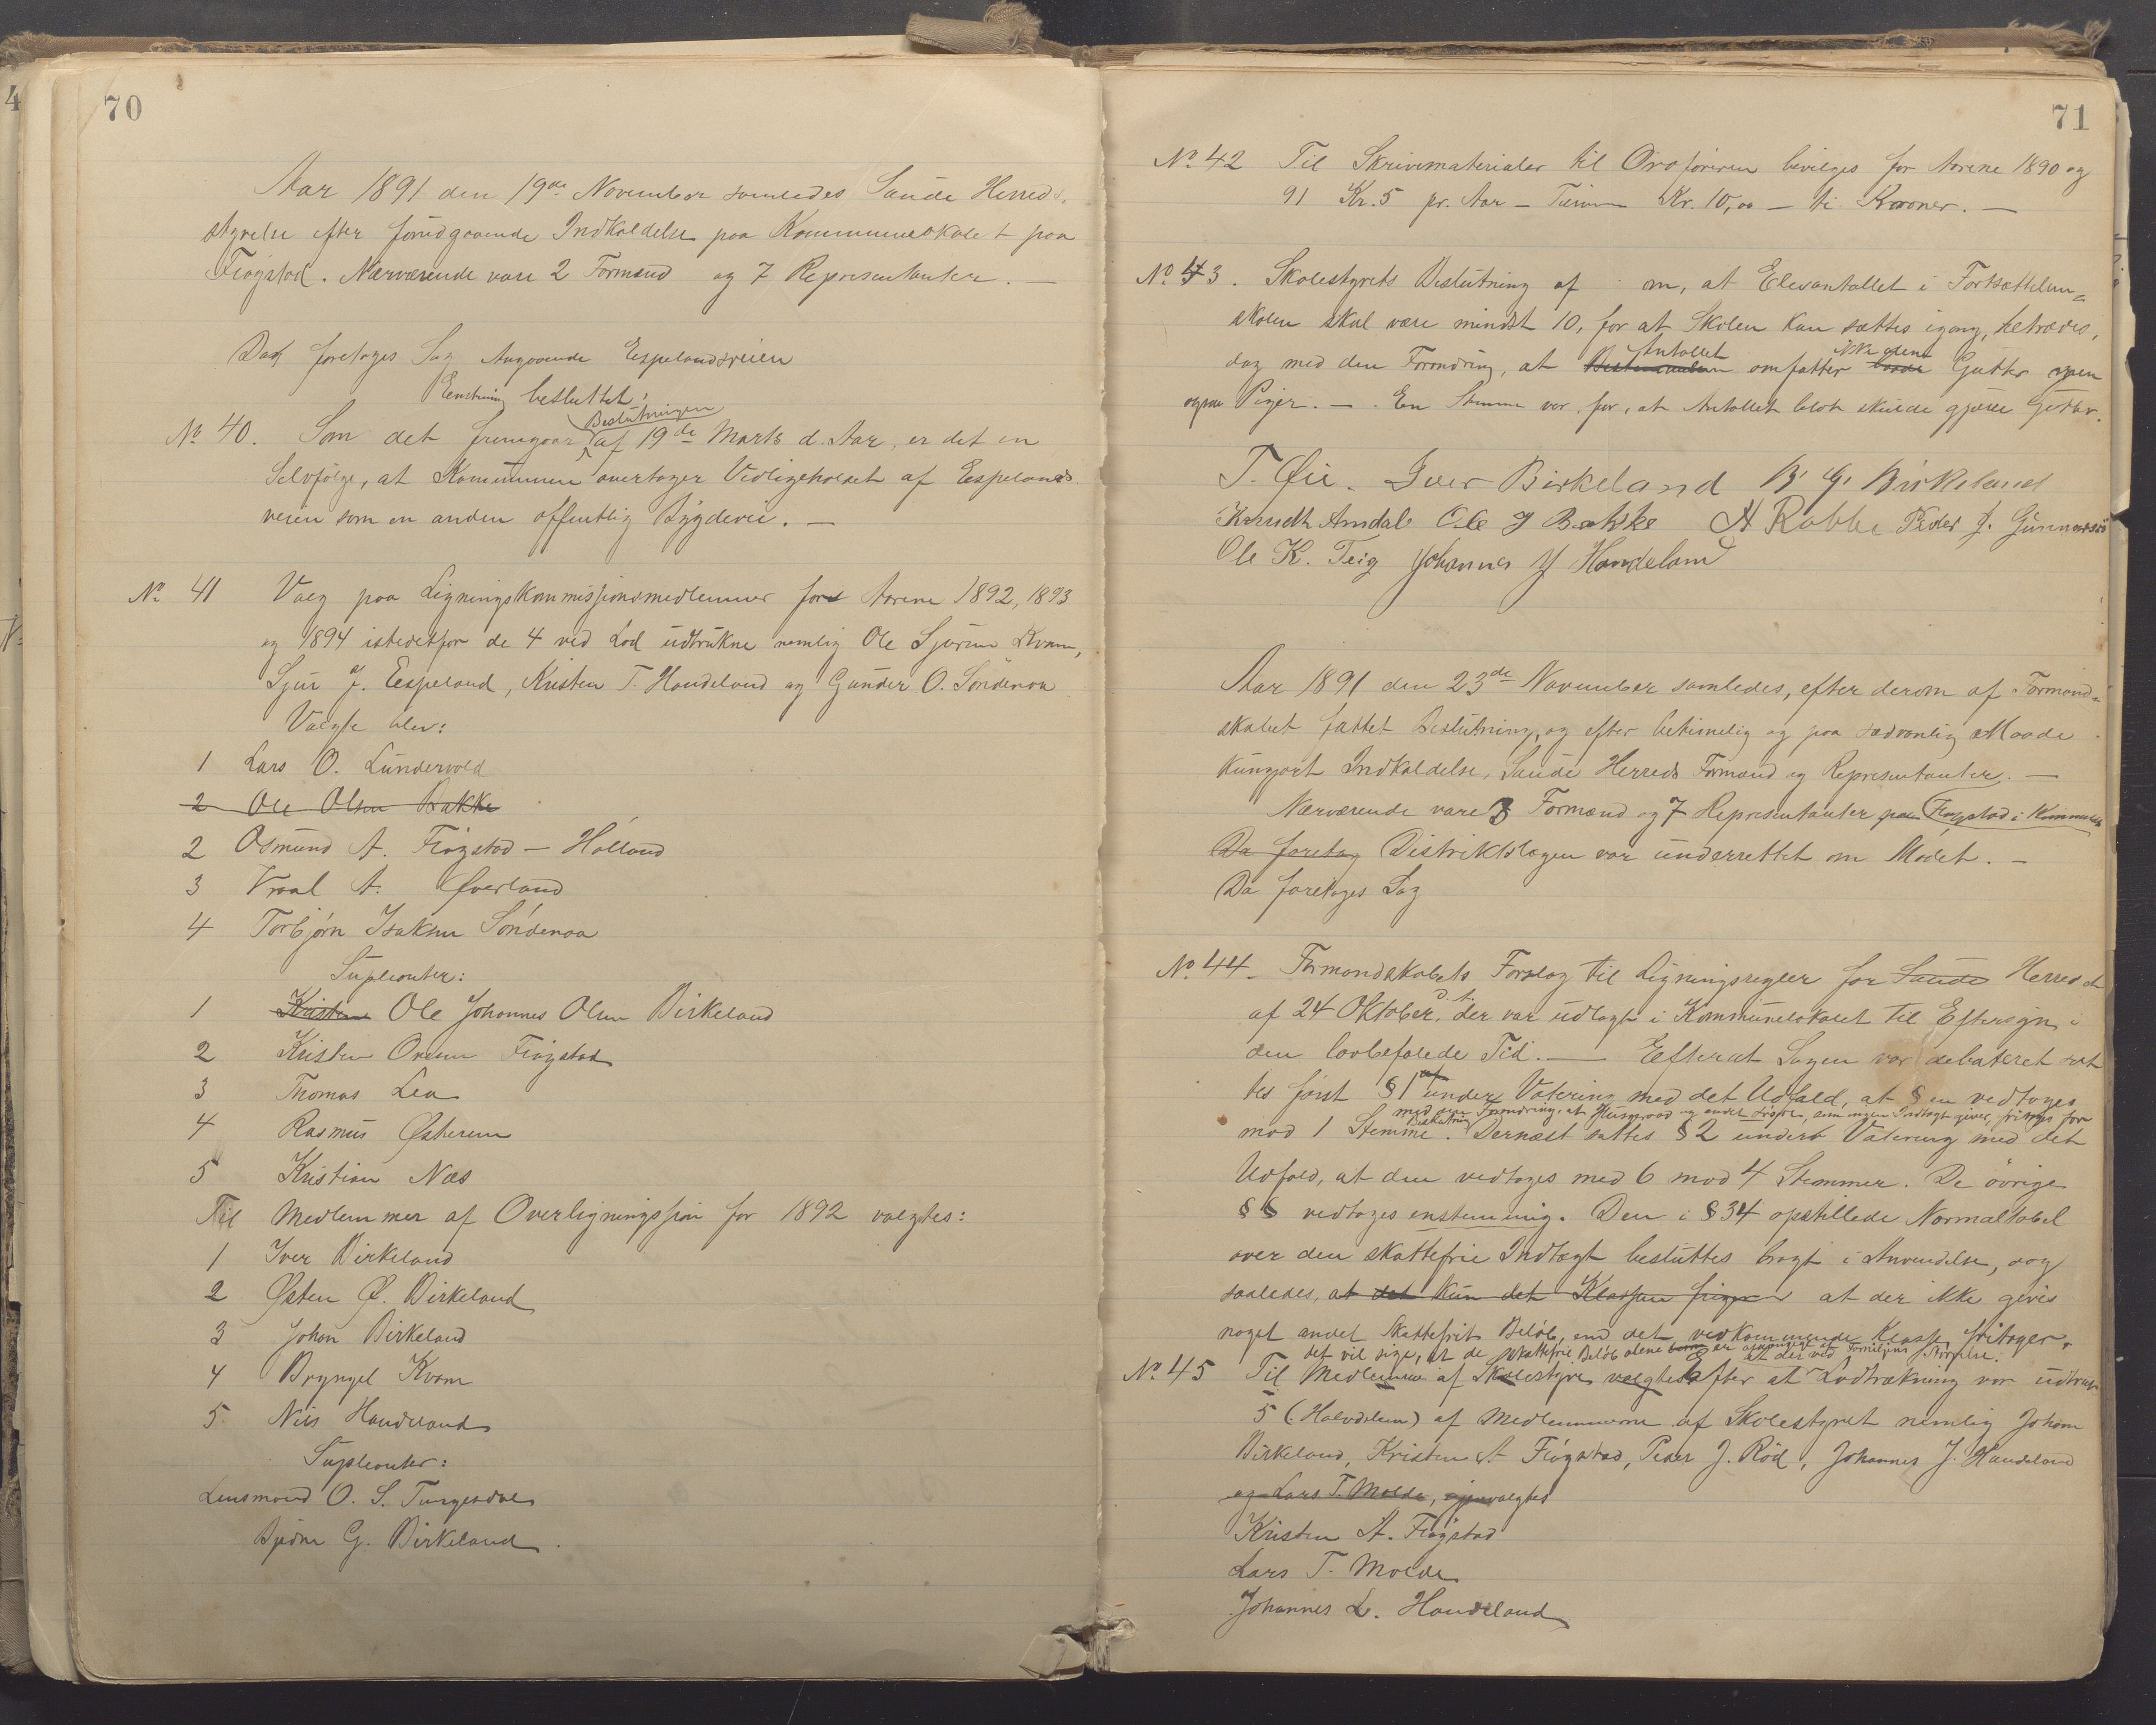 70
Aar 1891 den 19de November samledes Saude Herreds-
styrelse efter forudgaaende Indkaldelse paa Kommunelokalet paa
Fiøgstad. Nærværende vare 2 Formænd og 7 Repræsentanter. —
Da foretoges Sag Angaaende Espelandsveien
Eenstemmig besluttet:
No 40. Som det fremgaar Beslutningen af 19de Marts d. Aar, er det en
Selvfølge, at Kommunen overtager Vedligeholdet af Espelands-
veien som en anden offentlig Bygdevei. —
No 41 Valg paa Ligningskommissionsmedlemmer for Aarene 1892, 1893
og 1894 istedetfor de 4 ved Lod udtrukne nemlig Ole Sjursen Kvam,
Sjur J. Espeland, Kristen T. Handeland og Gunder O. Søndenaa
Valgte blev:
1 Lars O. Lundervold
2 Ole Olsen Bakke
2 Osmund A. Fiøgstad — Hølland
3 Vraal A. Øverland
4 Torbjørn Isaksen Søndenaa
Supleanter:
1 Kristen Ole Johannes Olsen Birkeland
2 Kristen Fiøgstad
3 Thomas Lea
4 Rasmus Østerem
5 Kristian Næs
Til Medlemmer af for 1892 valgtes:
1 Iver Birkeland
2 Østen Ø. Birkeland
3 Johan Birkeland
4 Bryngel Kvam
5 Nils Handeland
Supleanter:
Lensmand O. S.
Bjørn G. Birkeland.
71
No 42 Til Skrivematerialer til Ordføreren bevilges for Aarene 1890 og
91 Kr. 5 pr. Aar — Tilsammen Kr. 10,00 — ti Kroner. —
No 43. Skolestyrets Beslutning af om, at Elevantallet i Fortsættelses-
skolen skal være mindst 10, for at Skolen kan sættes igang, tiltrædes,
dog med den Forandring, at Antallet omfatter ikke alene baade Gutter men
ogsaa Piger. — . En Stemme var for, at Antallet blot skulde gjælde Gutter.
T. Øie. Iver Birkeland B. G. Birkeland
Knudt Amdal Ole J Bakke A Rabbe Peder J. Gunnarsen
Ole K. Teig Johannes J Handeland
Aar 1891 den 23de November samledes, efter derom af Formand-
skabet fattet Beslutning, og efter betimelig og paa sædvanlig Maade
kungjort Indkaldelse, Saude Herreds Formænd og Repræsentanter. —
Nærværende vare 3 Formænd og 7 Repræsentanter paa Fiøgstad i
Da foretog Distriktslægen var underrettet om Mødet. —
Da foretoges Sag
No 44. Formandskabets Forslag til Ligningsregler for Saude Herred
af 24 Oktober d. A. der var udlagt i Kommunelokalet til Eftersyn i
den lovbefalede Tid. — Efterat Sagen var debateret sat
tes først § 1 under Votering med det Udfald, at §en vedtoges
med den Forandring, at Husgeraad og andet Løsøre, som ingen Indtægt giver, fritages for Beskatning
mod 1 Stemme. Dernæst sattes § 2 under Votering med det
Udfald, at den vedtoges med 6 mod 4 Stemmer. De øvrige
§§ vedtoges enstemmig. Den i § 34 opstillede Normaltabel
over den skattefrie Indtægt besluttes bragt i Anvendelse, dog
saaledes, at det kun det Klassen at der ikke gives
noget andet Skattefrit Beløb, end det vedkommende Klasse fritager,
det vil sige, at de skattefrie Beløb alene er afhængigt af Familiens Størrelse.
No 45 Til Medlemmer af Skolestyre valgtes efter at der ved Lodtrækning var udtrukket
5 (Halvdelen) af Medlemmerne af Skolestyret nemlig Johan
Birkeland, Kristen A Fiøgstad, Peder J. Rød, Johannes J. Handeland
og Lars T. Molde, gjenvalgtes
Kristen A. Fiøgstad
Lars T. Molde
Johannes L. Handeland